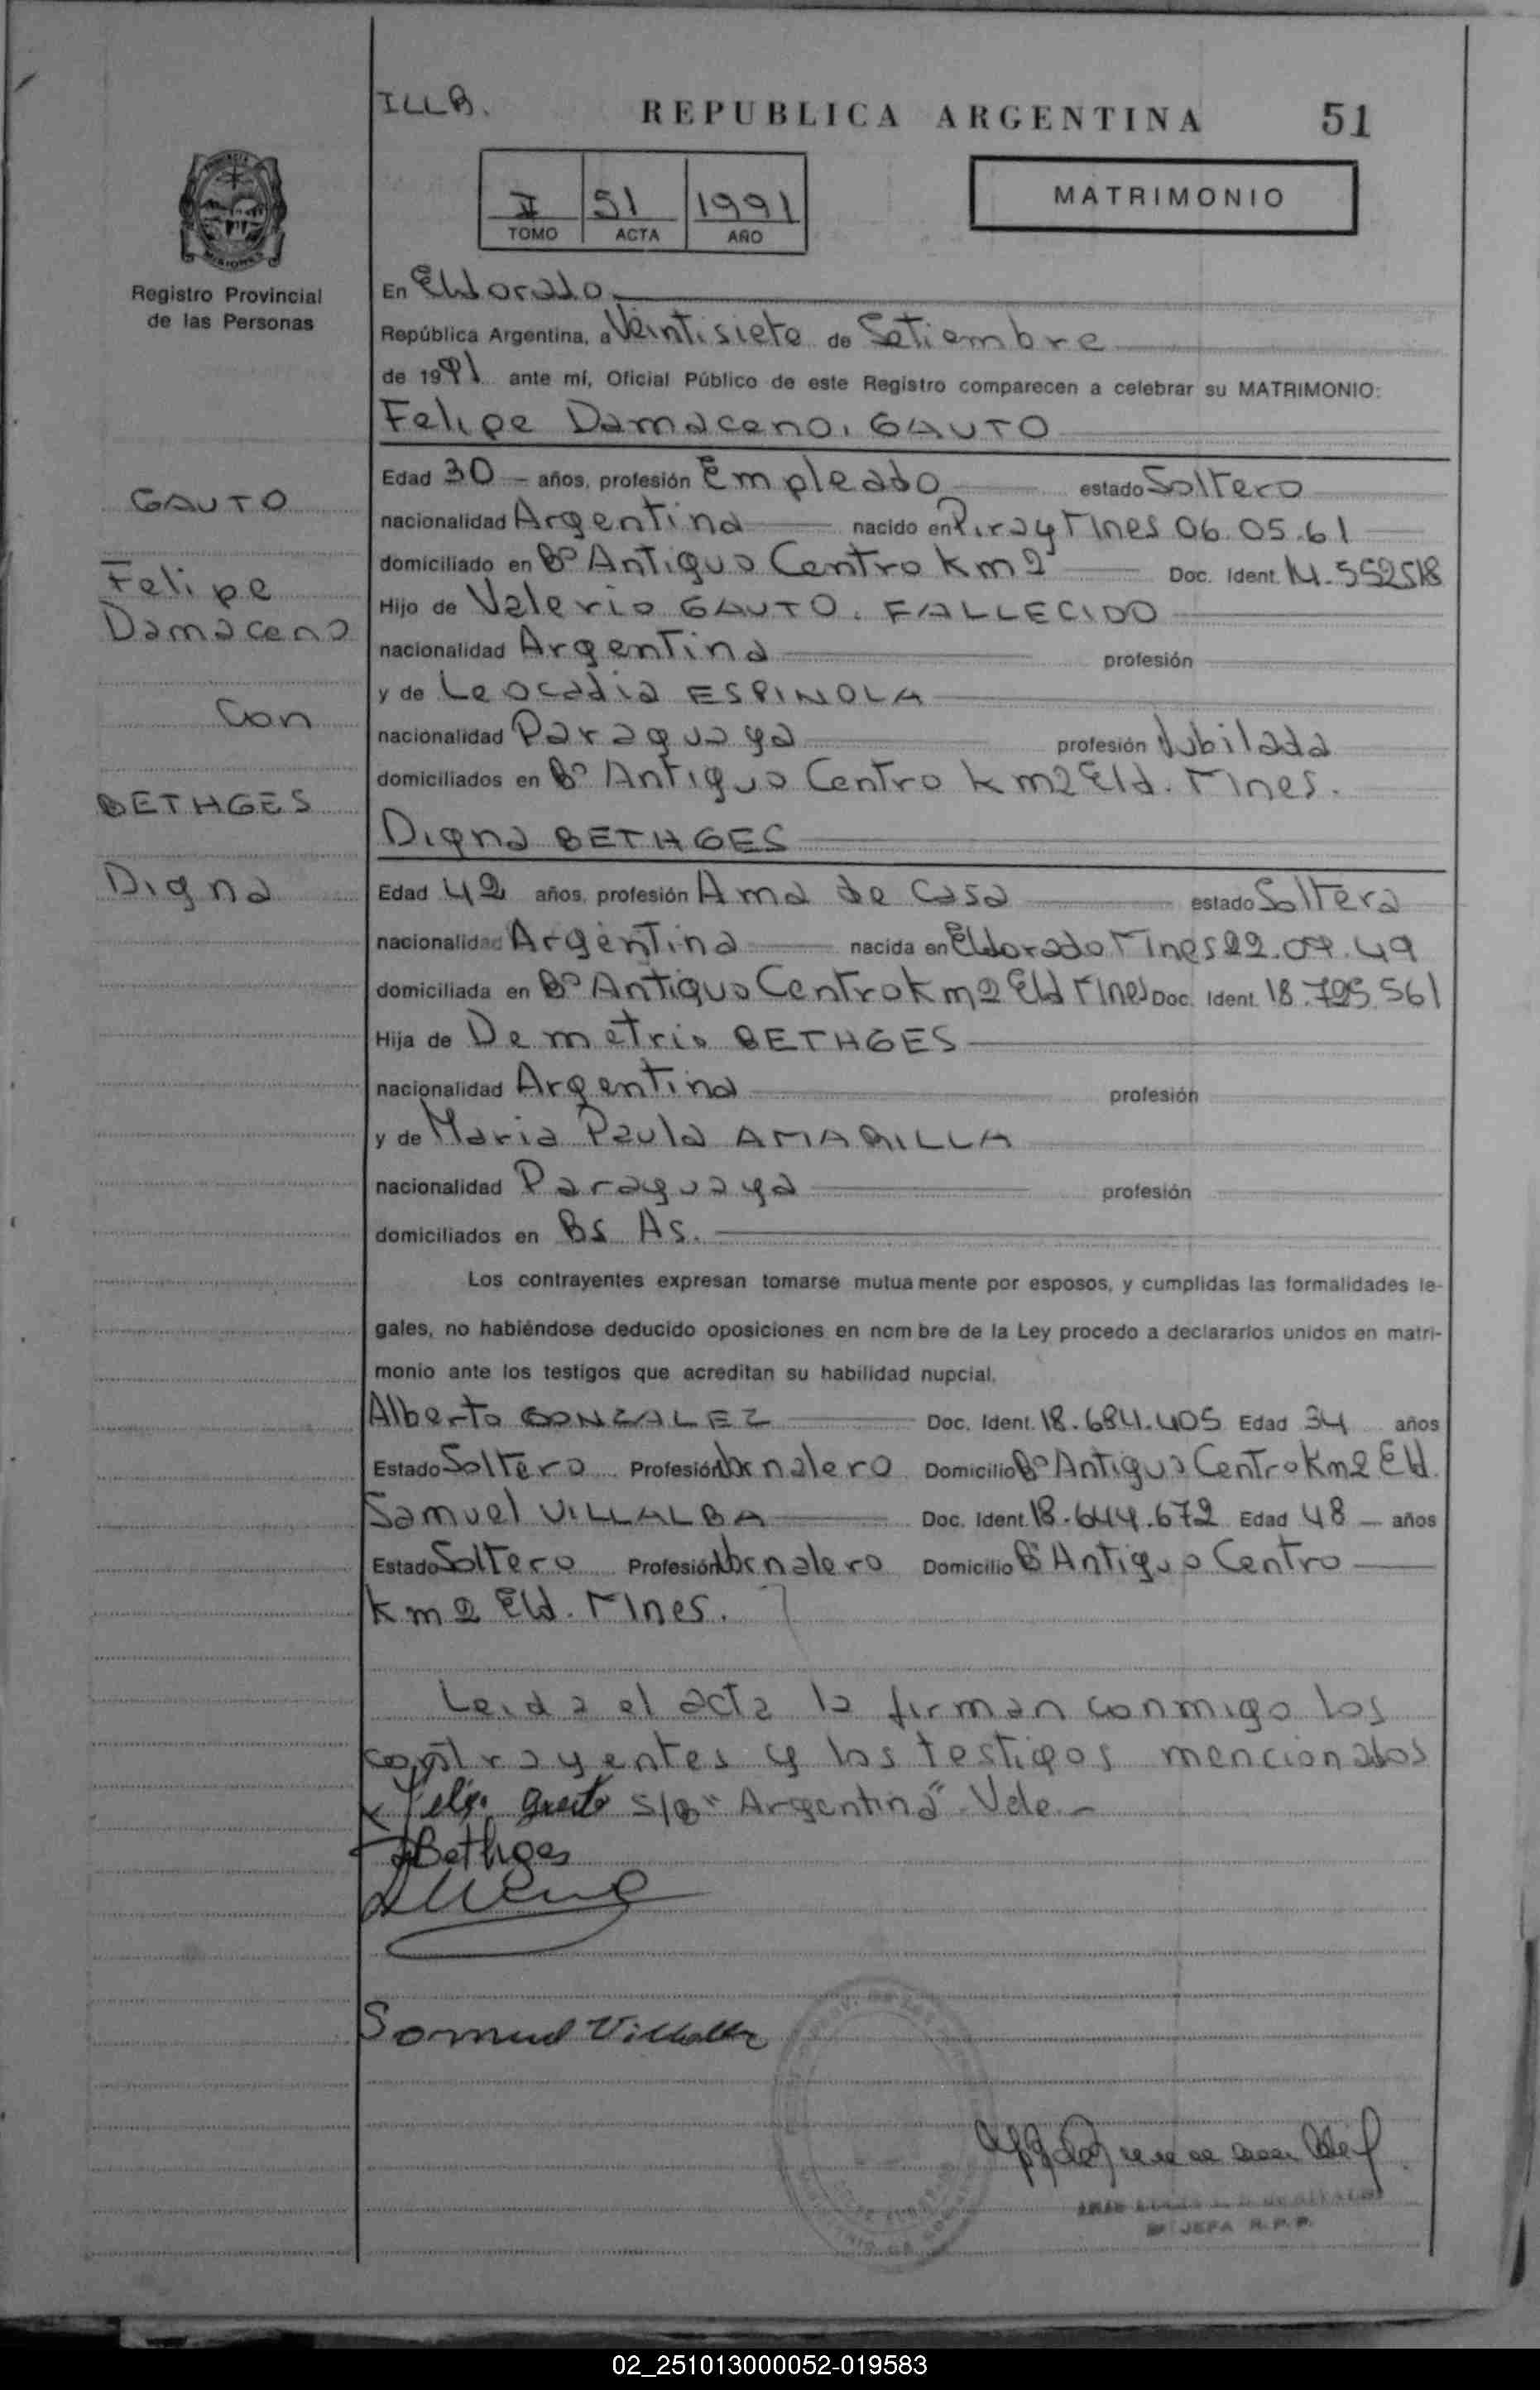 ILLB.
REPUBLICA ARGENTINA 51
II 51 1991
TOMO ACTA AÑO
MATRIMONIO
Registro Provincial
de las Personas
En Eldorado
República Argentina, a Veintisiete de Setiembre
de 1991 ante mí, Oficial Público de este Registro comparecen a celebrar su MATRIMONIO:
Felipe Damaceno. GAUTO
GAUTO
Felipe
Damaceno
Con
BETHGES
Digna
Edad 30 años, profesión Empleado estado Soltero
nacionalidad Argentina nacido en Piray Mnes 06.05.61
domiciliado en Bº Antiguo Centro Km 2 Doc. Ident. 14.552518
Hijo de Valerio GAUTO. FALLECIDO
nacionalidad Argentina profesión
y de Leocadia ESPINOLA
nacionalidad Paraguaya profesión Jubilada
domiciliados en Bº Antiguo Centro km2 Eld. Mnes.
Digna BETHGES
Edad 42 años, profesión Ama de Casa estado Soltera
nacionalidad Argentina nacida en Eldorado Mnes 22.07.49
domiciliada en Bº Antiguo Centro Km2 Eld Mnes Doc. Ident. 18.795.561
Hija de Demetrio BETHGES
nacionalidad Argentina profesión
y de Maria Paula AMARILLA
nacionalidad Paraguaya profesión
domiciliados en Bs As.
Los contrayentes expresan tomarse mutuamente por esposos, y cumplidas las formalidades le-
gales, no habiéndose deducido oposiciones en nombre de la Ley procedo a declararlos unidos en matri-
monio ante los testigos que acreditan su habilidad nupcial.
Alberto GONZALEZ Doc. Ident. 18.684.405 Edad 34 años
Estado Soltero Profesión Jornalero Domicilio Bº Antiguo Centro Km2 Eld.
Samuel VILLALBA Doc. Ident. 18.644.672 Edad 48 años
Estado Soltero Profesión Jornalero Domicilio Bº Antiguo Centro
km2 Eld. Mnes.
Leida el acta la firman conmigo los
contrayentes y los testigos mencionados
S/B "Argentina" Vale
Bethges
Samuel Villalba
JEFA R.P.P.
02_251013000052-019583